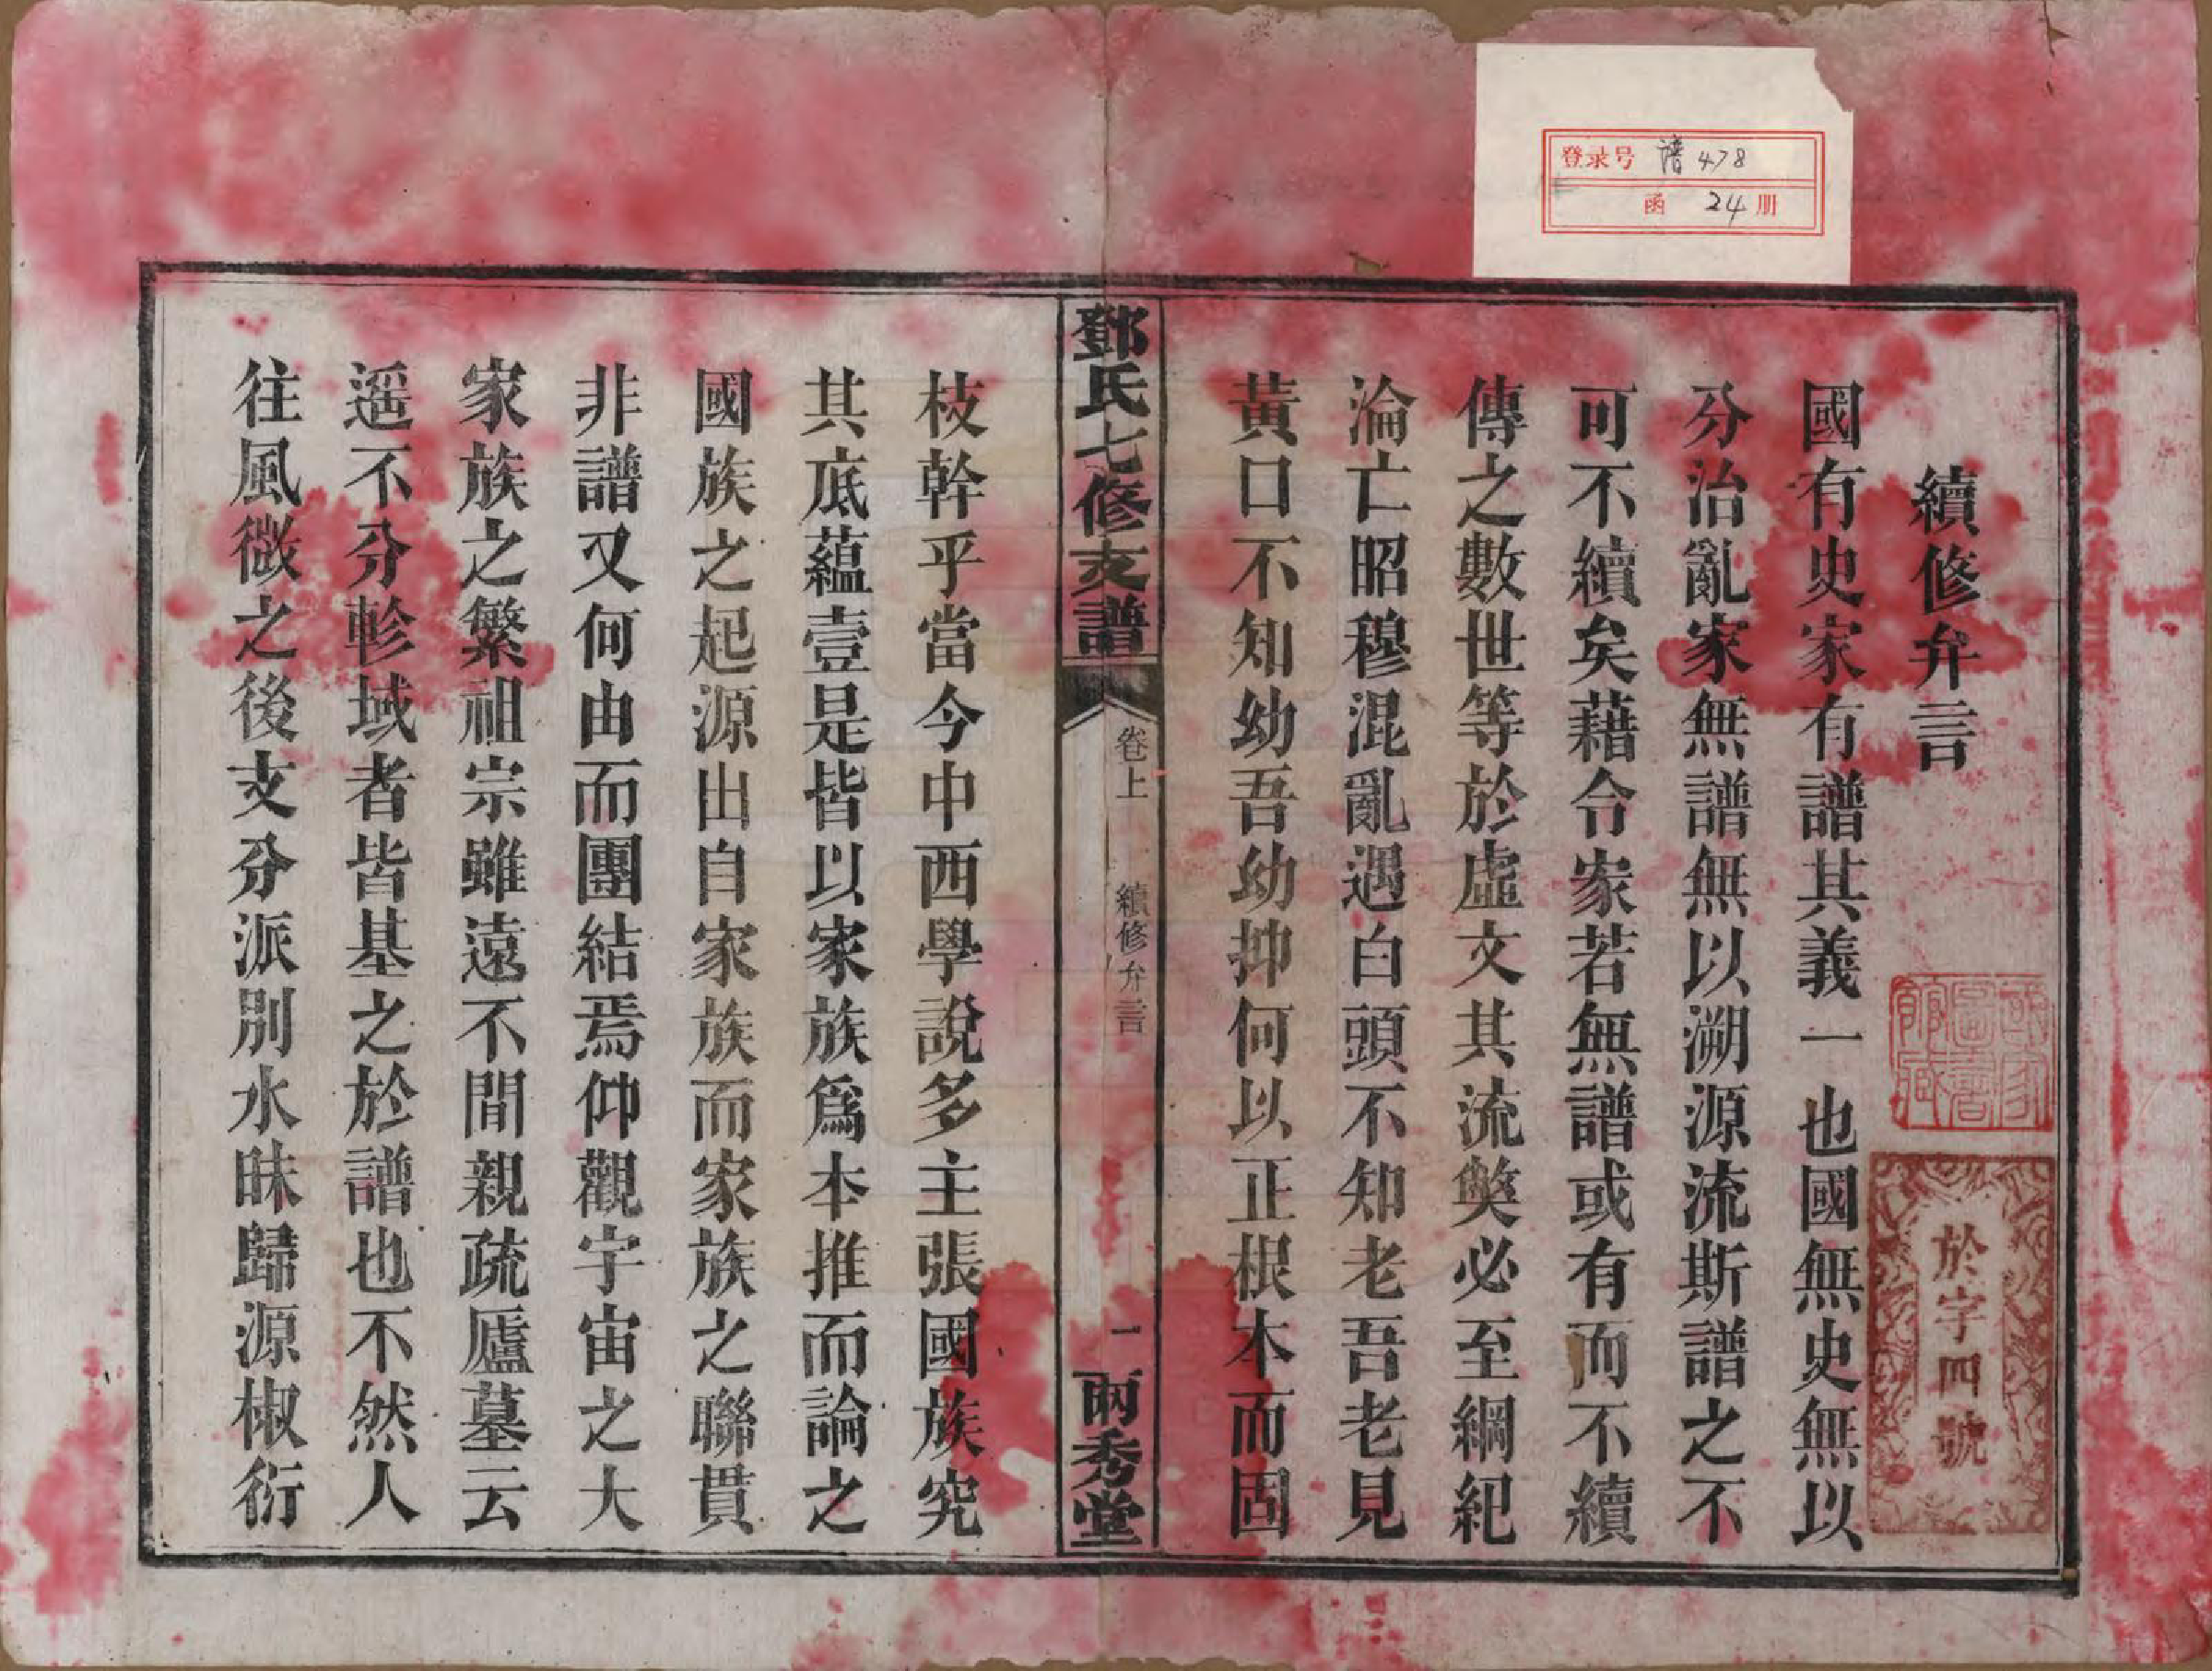 登录号 谱478
函 24册
續修弁言
國有史家有譜其義一也國無史無以
分治亂家無譜無以溯源流斯譜之不
可不續矣藉令家若無譜或有而不續
傳之數世等於虛文其流獘必至綱紀
淪亡昭穆混亂遇白頭不知老吾老見
黃口不知幼吾幼抑何以正根本而固
於字四號
國家圖書館藏
鄧氏七修支譜
卷上
續修弁言
一
兩秀堂
枝幹乎當今中西學說多主張國族究
其底蘊壹是皆以家族爲本推而論之
國族之起源出自家族而家族之聯貫
非譜又何由而團結焉仰觀宇宙之大
家族之繁祖宗雖遠不間親疏廬墓云
遥不分畛域者皆基之於譜也不然人
往風微之後支分派別水昧歸源椒衍